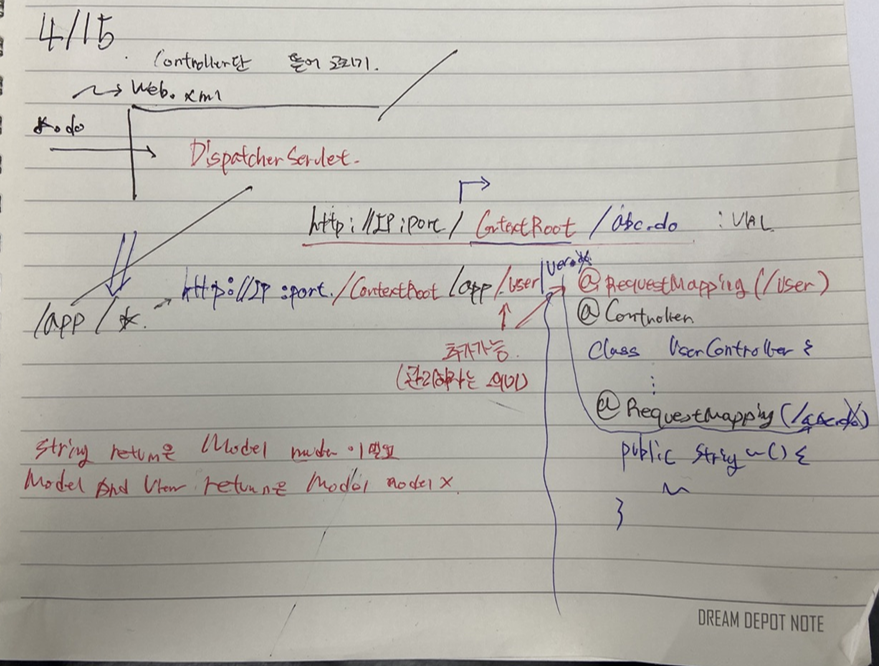 4/15
Controller단 뜯어 고치기.
web.xml
*.do
DispatcherServlet.
http://IP:port/ContextRoot/abc.do : URL
/app/* → http://IP:port/ContextRoot/app/user/
추가가능.
(관리하라는 의미)
@RequestMapping(/user)
@Controller
Class UserController {
⋮
@RequestMapping(/abc.do)
public String ~() {
~
}
String return은 Model model 이 필요
Model And View return은 Model model X.
DREAM DEPOT NOTE